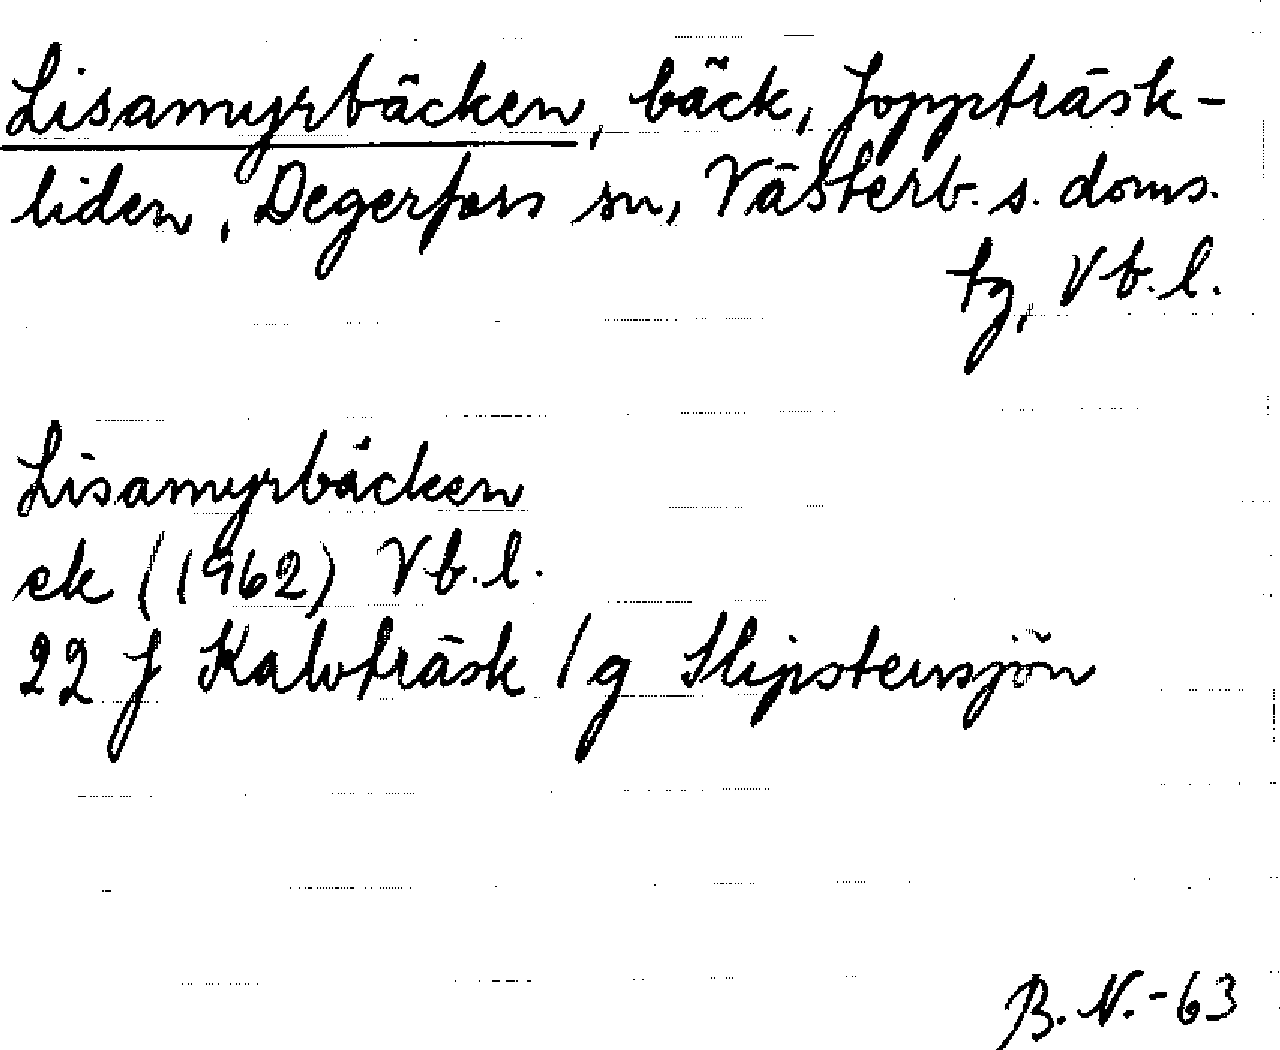 Lisamyrbäcken, bäck, Joppträsk-
liden, Degerfors sn, Västerb. s. doms.
tg, Vb. l.
Lisamyrbäcken
ek (1962) Vb. l.
22 J Kalvträsk / g Slipstensjön
B. N. -63